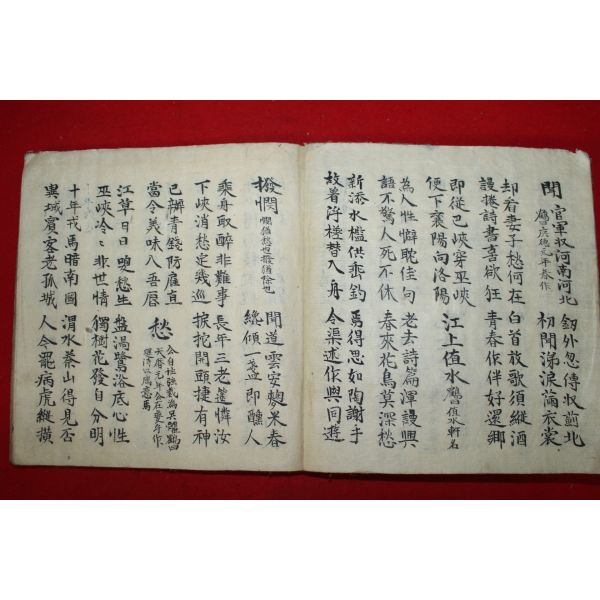 聞官軍收河南河北
鶴曰廣德元年春作
釰外忽傳收薊北
初聞涕淚滿衣裳
却看妻子愁何在
謾捲詩書喜欲狂
白首放歌須縱酒
青春作伴好還鄉
即從巴峽穿巫峽
便下襄陽向洛陽
江上值水 鶴曰值水軒名
為人性僻耽佳句
語不驚人死不休
老去詩篇渾謾興
春來花鳥莫深愁
新添水檻供垂釣
故着浮槎替入舟
焉得思如陶謝手
令渠述作與同遊
撥憫 憫猶愁也撥猶除也
聞道雲安麴米春
纔傾一盞即醺人
乘舟取醉非難事
下峽消愁定幾巡
長年三老遙憐汝
捩柁開頭捷有神
已辦青錢防雇直
當令美味入吾唇
愁
公自註強戲為吳體鶴曰
元年公在夔年作
江草日日喚愁生
巫峽冷〻非世情
盤渦鷺浴底心性
獨樹花發自分明
十年戎馬暗南國
異域賓客老孤城
渭水秦山得見否
人今罷病虎縱橫